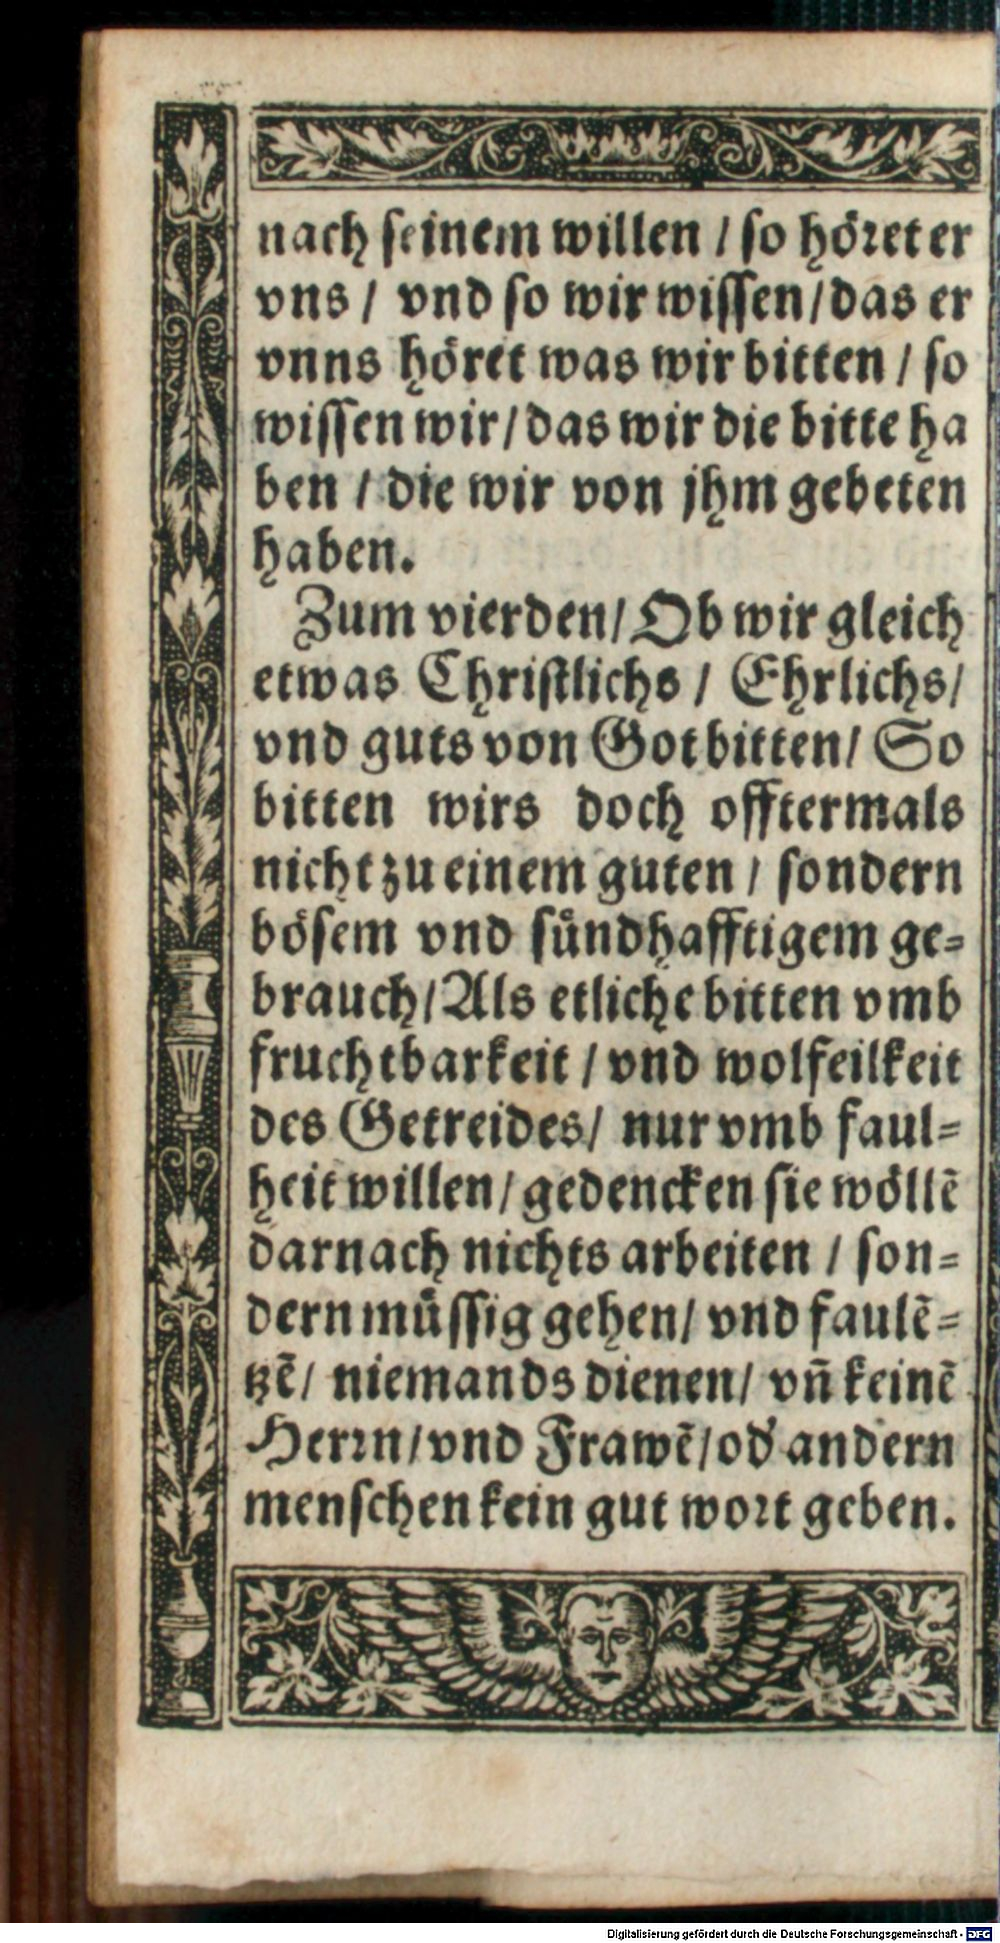 nach ſeinem willen / ſo höꝛet er
vns / vnd ſo wir wiſſen / das er
vnns höret was wir bitten / ſo
wiſſen wir / das wir die bitte ha
ben / die wir von jhm gebeten
haben.
Zum vierden / Ob wir gleich
etwas Chriſtlichs / Ehrlichs /
vnd guts von Got bitten / So
bitten wirs doch offtermals
nicht zu einem guten / ſondern
böſem vnd ſuͤndhafftigem ge⸗
brauch / Als etliche bitten vmb
fruchtbarkeit / vnd wolfeilkeit
des Getreides / nur vmb faul⸗
heit willen / gedencken ſie wöllē
darnach nichts arbeiten / ſon⸗
dern muͤſſig gehen / vnd faulē⸗
tzē / niemands dienen / vn̄ keinē
Herꝛn / vnd Frawē / od' andern
menſchen kein gut woꝛt geben.
Digitalisierung gefördert durch die Deutsche Forschungsgemeinschaft - DFG